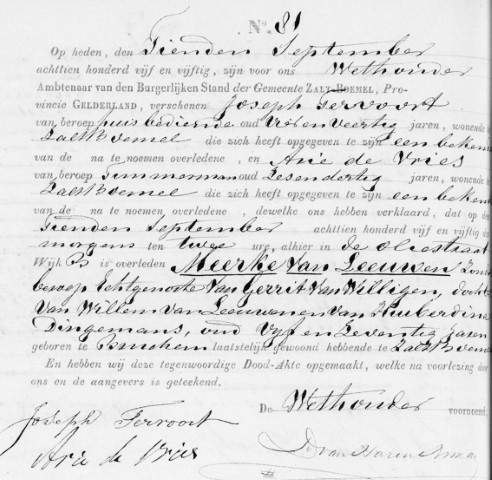 No. 81
Op heden, den Tienden September
achttien honderd vijf en vijftig, zijn voor ons Wethouder
Ambtenaar van den Burgerlijken Stand der Gemeente ZALT-BOEMEL, Pro-
vincie GELDERLAND, verschenen Joseph Tervoort
van beroep huisbediende oud Vier en Veertig jaren, wonende
Zaltboemel die zich heeft opgegeven te zijn een beken
van de na te noemen overledene, en Arie de Vries
van beroep Timmerman oud Zesendertig jaren, wonende
Zaltboemel die zich heeft opgegeven te zijn een beken
van de na te noemen overledene, dewelke ons hebben verklaard, dat op d
Tienden September achttien honderd vijf en vijftig
morgens ten twee ure, alhier in de oliestraat
Wijk B is overleden Meerke Van Leeuwen Zon
beroep Echtgenoote Van Gerrit Van Willigen, docht
Van Willem Van Leeuwen en Van Huiberdina
Dingemans, oud Vyf en Zeventig jaren
geboren te Bruchem laatstelijk gewoond hebbende te Zaltboem
En hebben wij deze tegenwoordige Dood-Akte opgemaakt, welke na voorlezing door
ons en de aangevers is geteekend.
De Wethouder voornoemd.
Joseph Tervoort
Arie de Vries